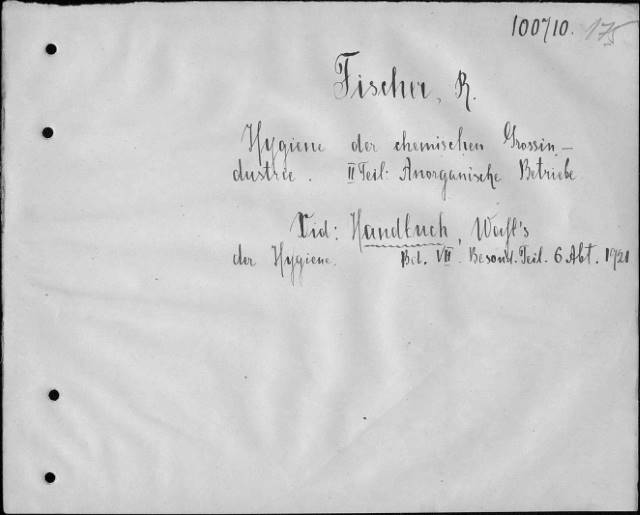 100710. 175
Fischer, R.
Hygiene der chemischen Grossin-
dustrie. II Teil: Anorganische Betriebe
Vid: Handbuch, Weyl's
der Hygiene. Bd. VII. Besond. Teil. 6 Abt. 1921